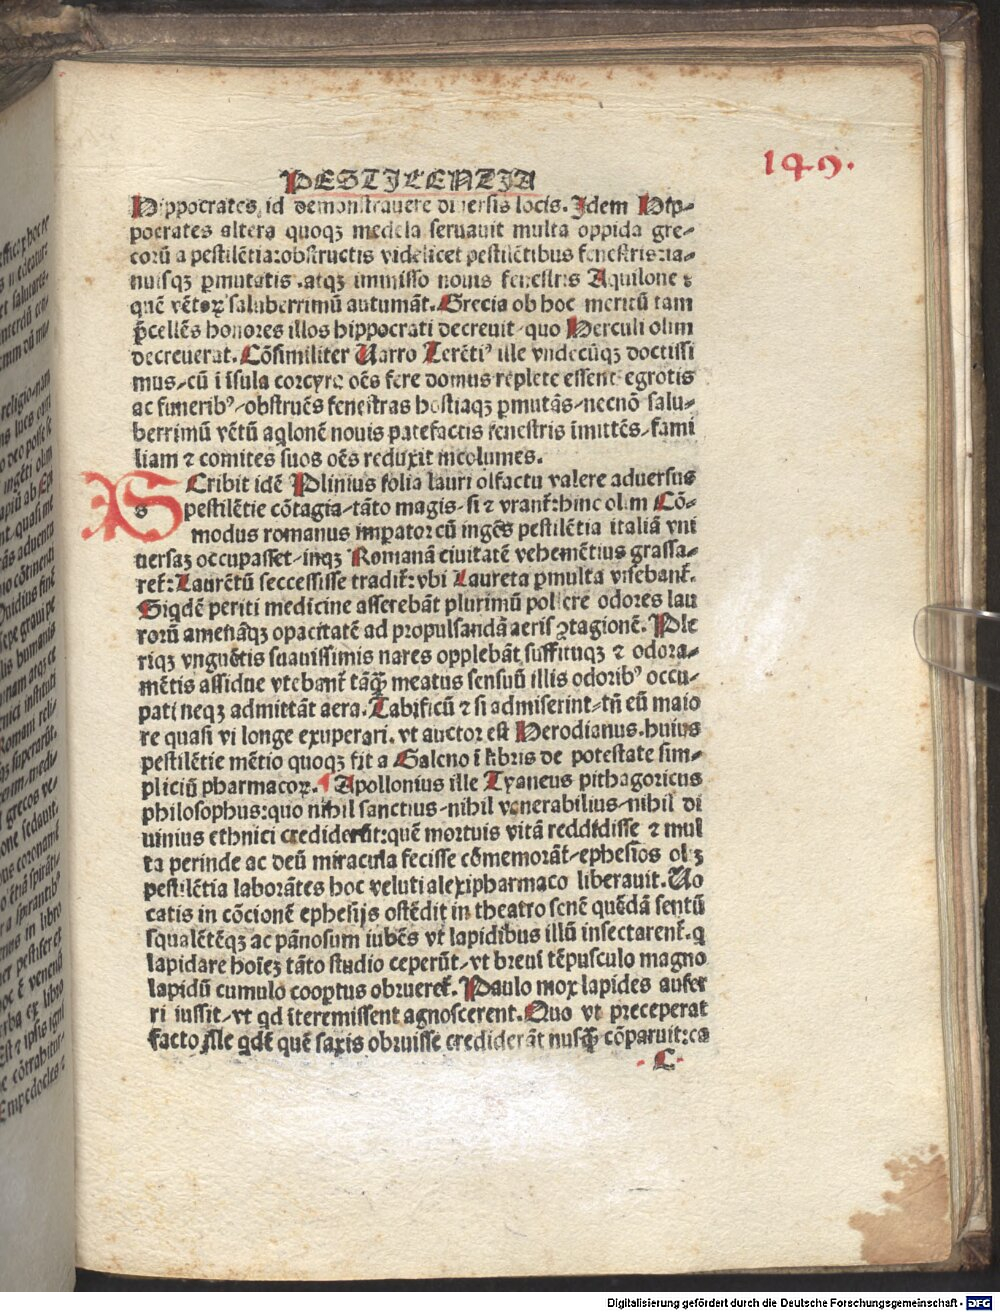 149.
PESTILENTIA
Hippocrates, id demonstrauere diuersis locis. Idem Hip-
pocrates altera quoqꝫ medela seruauit multa oppida gre-
corū a pestilētia: obstructis videlicet pestilētibus fenestris: ia-
nuisqꝫ ꝑmutatis. atqꝫ immisso nouis fenestris Aquilone ⁊
quē vētoꝝ saluberrimū autumāt. Grecia ob hoc meritū tam
p̄cellēs honores illos hippocrati decreuit quo Herculi olim
decreuerat. Cōsimiliter Uarro Terētiꝰ ille vndecūqꝫ doctissi
mus, cū ī īsula corcyre oēs fere domus replete essent egrotis
ac funeribꝰ, obstruēs fenestras hostiaqꝫ ꝑmutās, necnō salu-
berrimū vētū aqlonē nouis patefactis fenestris īmittēs, fami
liam ⁊ comites suos oēs reduxit incolumes.
SCribit idē Plinius folia lauri olfactu valere aduersus
pestilētie cōtagia, tāto magis, si ⁊ vrant᷑: hinc olim Cō-
modus romanus imꝑator cū ingēs pestilētia italiā vni
uersaꝫ occupasset, inqꝫ Romanā ciuitatē vehemētius grassa-
ret᷑: Laurētū seccessisse tradit᷑: vbi Laureta ꝑmulta visebant᷑.
Siqdē periti medicine asserebāt plurimū pollere odores lau
rorū amenāqꝫ opacitatē ad propulsandā aeris ꝯtagionē. Ple
riqꝫ vnguētis suauissimis nares opplebāt, suffituqꝫ ⁊ odora-
mētis assidue vtebant᷑ tāꝙ̄ meatus sensuū illis odoribꝰ occu-
pati neqꝫ admittāt aera. Tabificū ⁊ si admiserint, tn̄ eū maio
re quasi vi longe exuperari. vt auctor est Herodianus. huius
pestilētie mētio quoqꝫ fit a Galeno ī libris de potestate sim-
pliciū pharmacoꝝ. Apollonius ille Tyaneus pithagoricus
philosophus: quo nihil sanctius, nihil venerabilius, nihil di
uinius ethnici crediderūt: quē mortuis vitā reddidisse ⁊ mul
ta perinde ac deū miracula fecisse cōmemorāt, ephesios olꝫ
pestilētia laborātes hoc veluti alexipharmaco liberauit. Uo
catis in cōcionē ephesijs ostēdit in theatro senē quēdā sentū
squalētēqꝫ ac pānosum iubēs vt lapidibus illū insectarent᷑. q
lapidare hoīeꝫ tāto studio ceperūt, vt breui tēpusculo magno
lapidū cumulo cooꝑtus obrueret᷑. Paulo mox lapides aufer
ri iussit, vt qd īteremissent agnoscerent. Quo vt preceperat
facto ille qdē quē saxis obruisse crediderāt nusꝙ̄ cōparuit: ca
C
Digitalisierung gefördert durch die Deutsche Forschungsgemeinschaft - DFG